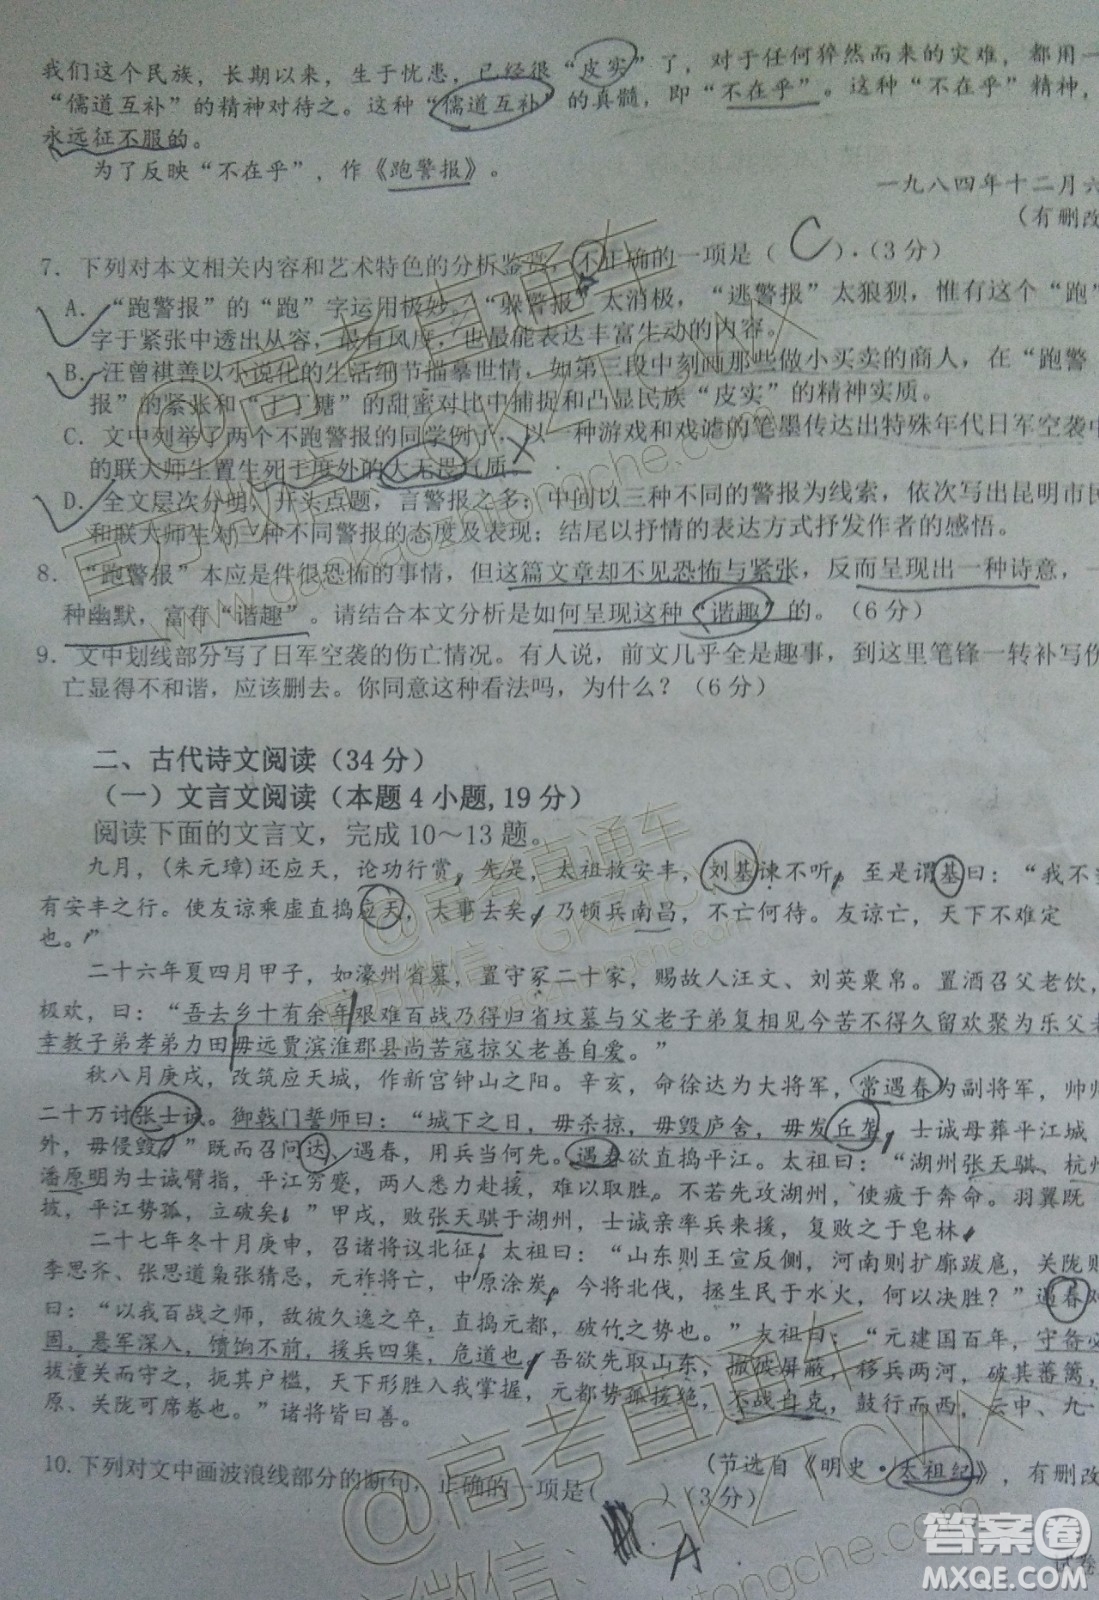 我们这个民族，长期以来，生于忧患，已经很“皮实”了，对于任何猝然而来的灾难，都用一
“儒道互补”的精神对待之。这种“儒道互补”的真髓，即“不在乎”。这种“不在乎”精神，
永远征不服的。
为了反映“不在乎”，作《跑警报》。
一九八四年十二月六
（有删改
7．下列对本文相关内容和艺术特色的分析鉴赏，不正确的一项是（ C ）．（3分）
A．“跑警报”的“跑”字运用极妙。“躲警报”太消极，“逃警报”太狼狈，惟有这个“跑”
字于紧张中透出从容，最有风度，也最能表达丰富生动的内容。
B．汪曾祺善以小说化的生活细节描摹世情，如第三段中刻画那些做小买卖的商人，在“跑警
报”的紧张和“丁丁糖”的甜蜜对比中捕捉和凸显民族“皮实”的精神实质。
C．文中列举了两个不跑警报的同学例子，以一种游戏和戏谑的笔墨传达出特殊年代日军空袭中
的联大师生置生死于度外的大无畏气质。
D．全文层次分明，开头点题，言警报之多；中间以三种不同的警报为线索，依次写出昆明市民
和联大师生对三种不同警报的态度及表现；结尾以抒情的表达方式抒发作者的感悟。
8．“跑警报”本应是件很恐怖的事情，但这篇文章却不见恐怖与紧张，反而呈现出一种诗意，一
种幽默，富有“谐趣”。请结合本文分析是如何呈现这种“谐趣”的。（6分）
9．文中划线部分写了日军空袭的伤亡情况。有人说，前文几乎全是趣事，到这里笔锋一转补写伤
亡显得不和谐，应该删去。你同意这种看法吗，为什么？（6分）
二、古代诗文阅读（34分）
（一）文言文阅读（本题4小题,19分）
阅读下面的文言文，完成10～13题。
九月，(朱元璋)还应天，论功行赏，先是，太祖救安丰，刘基谏不听，至是谓基曰：“我不
有安丰之行。使友谅乘虚直捣应天，大事去矣。乃顿兵南昌，不亡何待。友谅亡，天下不难定
也。”
二十六年夏四月甲子，如濠州省墓，置守冢二十家，赐故人汪文、刘英粟帛。置酒召父老饮，
极欢，曰：“吾去乡十有余年艰难百战乃得归省坟墓与父老子弟复相见今苦不得久留欢聚为乐父老
幸教子弟孝弟力田毋远贾滨淮郡县尚苦寇掠父老善自爱。”
秋八月庚戌，改筑应天城，作新宫钟山之阳。辛亥，命徐达为大将军，常遇春为副将军，帅师
二十万讨张士诚。御戟门誓师曰：“城下之日，毋杀掠，毋毁庐舍，毋发丘垄。士诚母葬平江城
外，毋侵毁。”既而召问达、遇春，用兵当何先。遇春欲直捣平江。太祖曰：“湖州张天骐、杭州
潘原明为士诚臂指，平江穷蹙，两人悉力赴援，难以取胜。不若先攻湖州，使疲于奔命。羽翼既
披，平江势孤，立破矣。”甲戌，败张天骐于湖州，士诚亲率兵来援，复败之于皂林。
二十七年冬十月庚申，召诸将议北征。太祖曰：“山东则王宣反侧，河南则扩廓跋扈，关陇则
李思齐、张思道枭张猜忌，元祚将亡，中原涂炭。今将北伐，拯生民于水火，何以决胜？”遇春对
曰：“以我百战之师，敌彼久逸之卒，直捣元都，破竹之势也。”太祖曰：“元建国百年，守备必
固，悬军深入，馈饷不前，援兵四集，危道也。吾欲先取山东，撤彼屏蔽，移兵两河，破其藩篱，
拔潼关而守之，扼其户槛，天下形胜入我掌握，元都势孤援绝，不战自克，鼓行而西，云中、九
原、关陇可席卷也。”诸将皆曰善。
（节选自《明史·太祖纪》，有删改
10.下列对文中画波浪线部分的断句，正确的一项是（ ）（3分）
A
试卷
@高考直通车
官方微信：GKZTCWX
www.gaokaozhitongche.com
答案圈
MXQE.COM